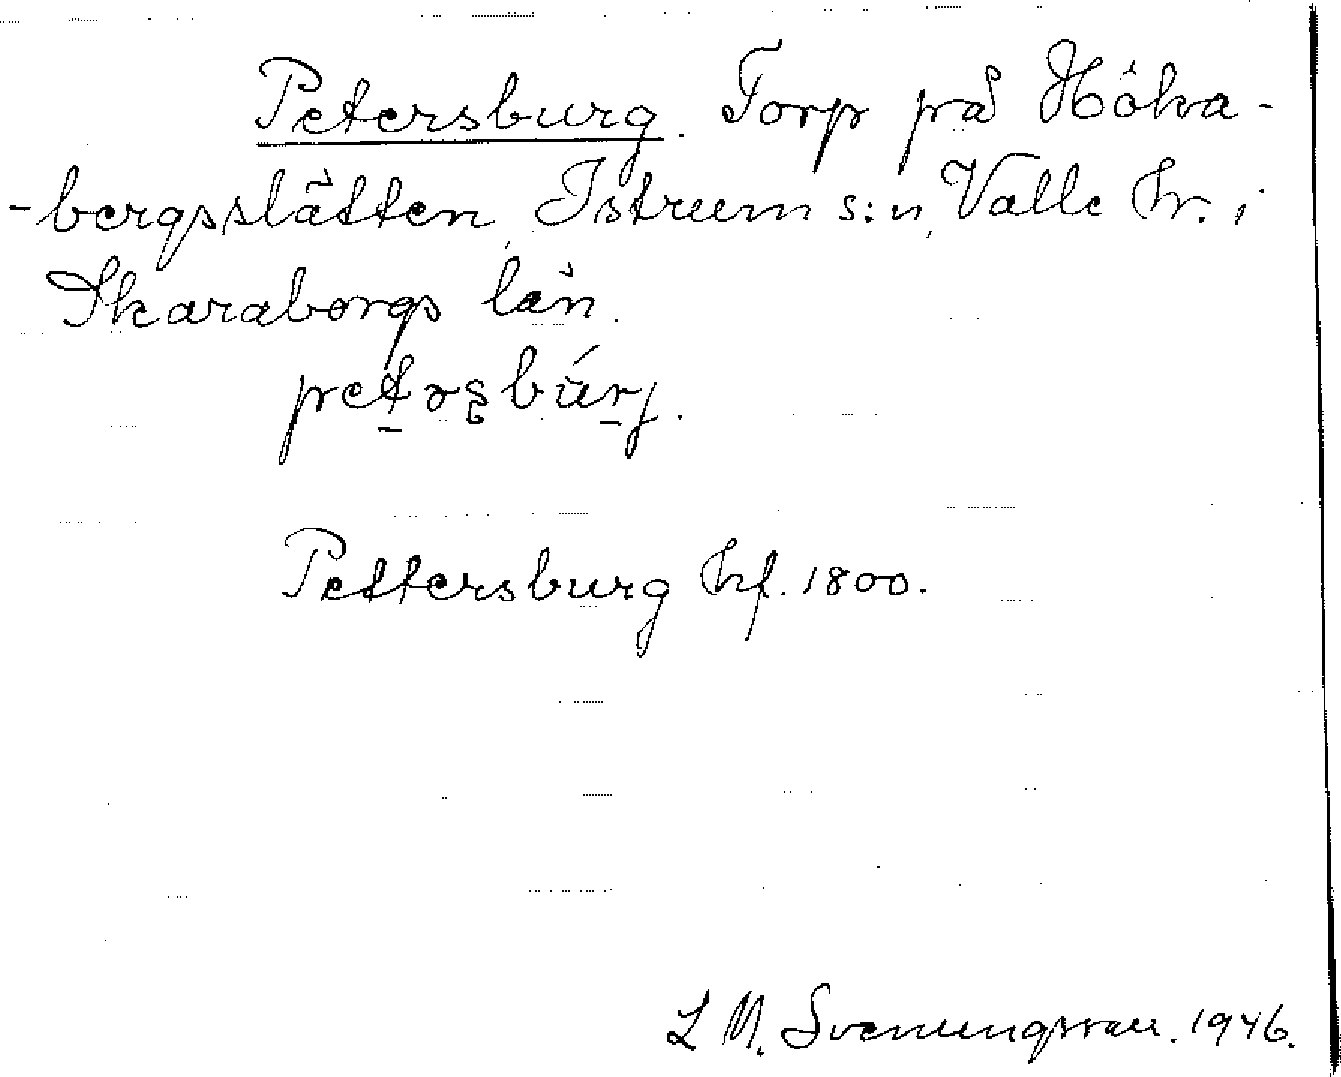 Petersburg. Torp på Höka-
-bergsslätten, Istrum s:n, Valle hr. i
Skaraborgs län.
Pettersburg hf. 1800.
L M. Svenungsson. 1946.